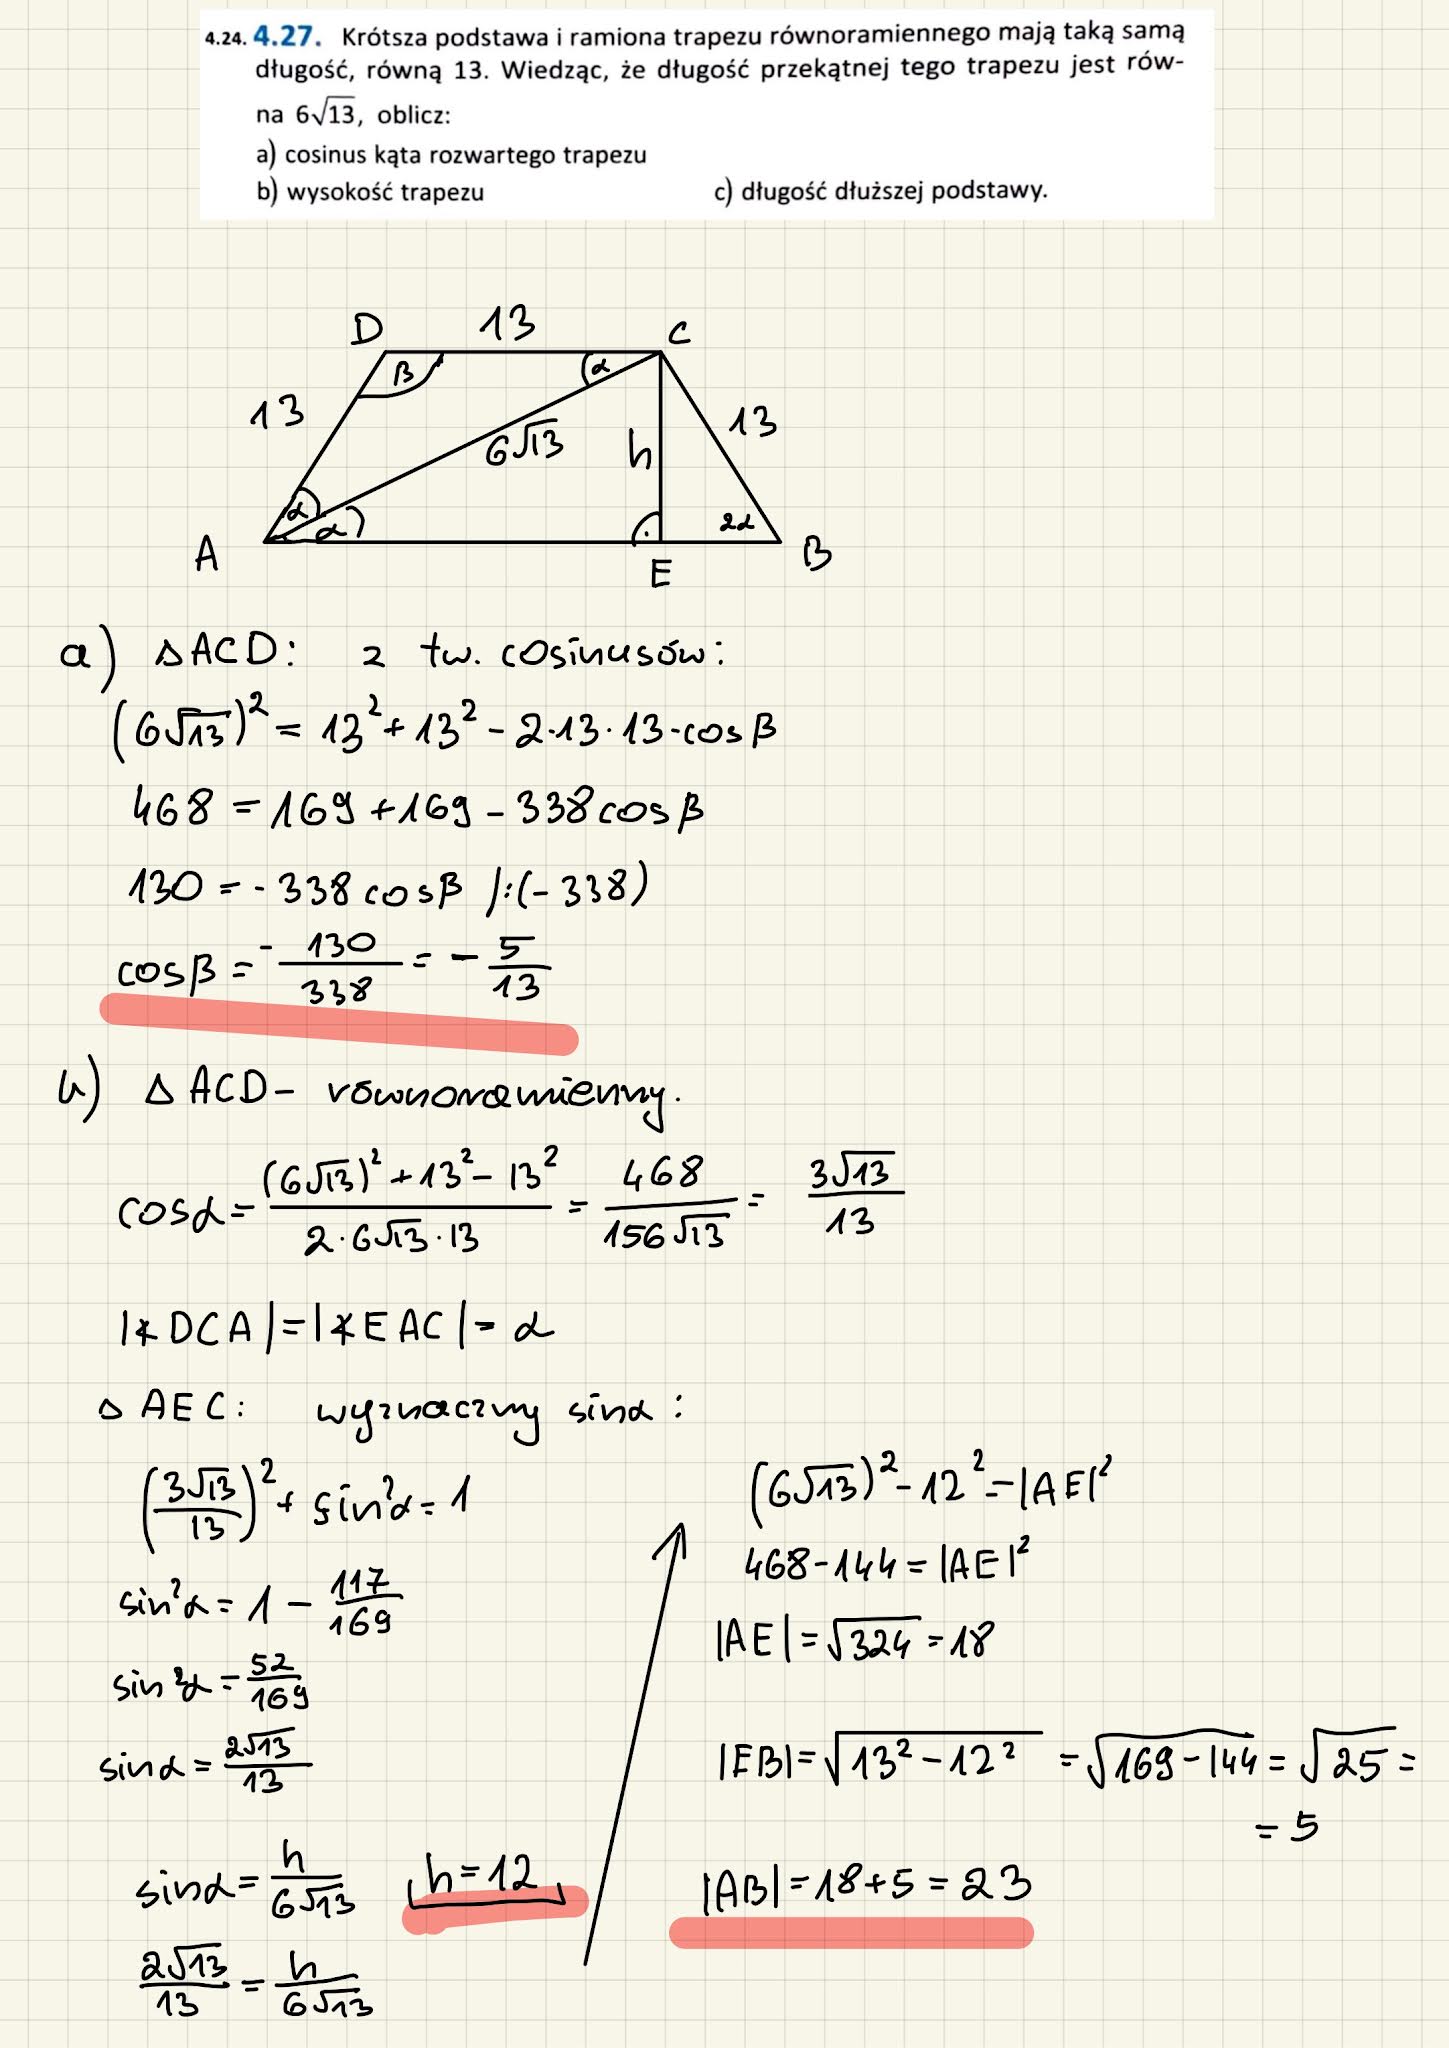 4.24. 4.27. Krótsza podstawa i ramiona trapezu równoramiennego mają taką samą
długość, równą 13. Wiedząc, że długość przekątnej tego trapezu jest rów-
na 6√13, oblicz:
a) cosinus kąta rozwartego trapezu
b) wysokość trapezu c) długość dłuższej podstawy.
D 13 C
β α
13 6√13 h 13
α α 2α
A E B
a) △ACD: z tw. cosinusów:
(6√13)² = 13² + 13² - 2·13·13·cosβ
468 = 169 + 169 - 338cosβ
130 = -338cosβ /:(-338)
cosβ = -130/338 = -5/13
b) △ACD - równoramienny.
cosα = ((6√13)² + 13² - 13²)/(2·6√13·13) = 468/(156√13) = 3√13/13
|∢DCA| = |∢EAC| = α
△AEC: wyznaczmy sinα:
(3√13/13)² + sin²α = 1
sin²α = 1 - 117/169
sin²α = 52/169
sinα = 2√13/13
sinα = h/(6√13) h = 12
2√13/13 = h/(6√13)
(6√13)² - 12² = |AE|²
468 - 144 = |AE|²
|AE| = √324 = 18
|EB| = √(13² - 12²) = √(169 - 144) = √25 =
= 5
|AB| = 18 + 5 = 23